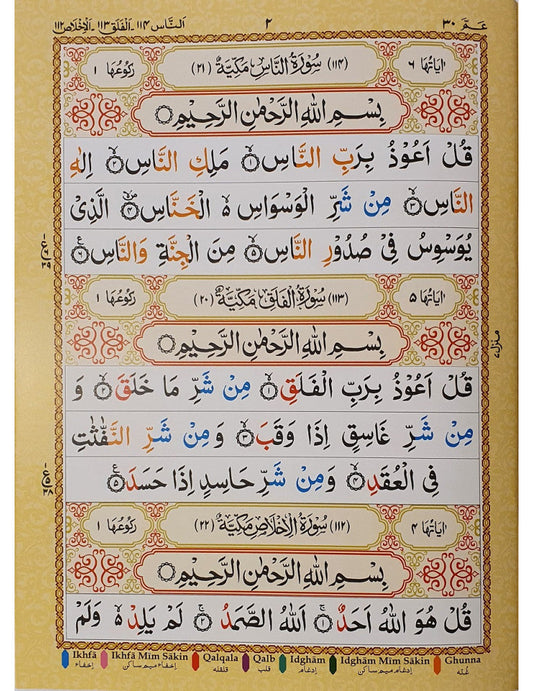 عم ٣٠ ٢ الناس ١١٤- الفلق ١١٣- الاخلاص ١١٢
اٰیَاتُهَا ٦ (١١٤) سُوْرَةُ النَّاسِ مَكِّیَّةٌ (٢١) رُكُوْعُهَا ١
بِسْمِ اللّٰهِ الرَّحْمٰنِ الرَّحِیْمِ
قُلْ اَعُوْذُ بِرَبِّ النَّاسِ ۙ‏﴿١﴾ مَلِكِ النَّاسِ ۙ‏﴿٢﴾ اِلٰهِ
النَّاسِ ۙ‏﴿٣﴾ مِنْ شَرِّ الْوَسْوَاسِ ۙ۬ الْخَنَّاسِ ۪ۙ‏﴿٤﴾ الَّذِیْ
یُوَسْوِسُ فِیْ صُدُوْرِ النَّاسِ ۙ‏﴿٥﴾ مِنَ الْجِنَّةِ وَالنَّاسِ ﴿٦﴾
اٰیَاتُهَا ٥ (١١٣) سُوْرَةُ الْفَلَقِ مَكِّیَّةٌ (٢٠) رُكُوْعُهَا ١
بِسْمِ اللّٰهِ الرَّحْمٰنِ الرَّحِیْمِ
قُلْ اَعُوْذُ بِرَبِّ الْفَلَقِ ۙ‏﴿١﴾ مِنْ شَرِّ مَا خَلَقَ ۙ‏﴿٢﴾ وَ
مِنْ شَرِّ غَاسِقٍ اِذَا وَقَبَ ۙ‏﴿٣﴾ وَمِنْ شَرِّ النَّفّٰثٰتِ
فِی الْعُقَدِ ۙ‏﴿٤﴾ وَمِنْ شَرِّ حَاسِدٍ اِذَا حَسَدَ ﴿٥﴾
اٰیَاتُهَا ٤ (١١٢) سُوْرَةُ الْاِخْلَاصِ مَكِّیَّةٌ (٢٢) رُكُوْعُهَا ١
بِسْمِ اللّٰهِ الرَّحْمٰنِ الرَّحِیْمِ
قُلْ هُوَ اللّٰهُ اَحَدٌ ۚ‏﴿١﴾ اَللّٰهُ الصَّمَدُ ۚ‏﴿٢﴾ لَمْ یَلِدْ ۙ۬ وَلَمْ
Ikhfā Ikhfā Mīm Sākin Qalqala Qalb Idghām Idghām Mīm Sākin Ghunna
إخفاء إخفاء میم ساکن قلقله قلب إدغام إدغام میم ساکن غنّه